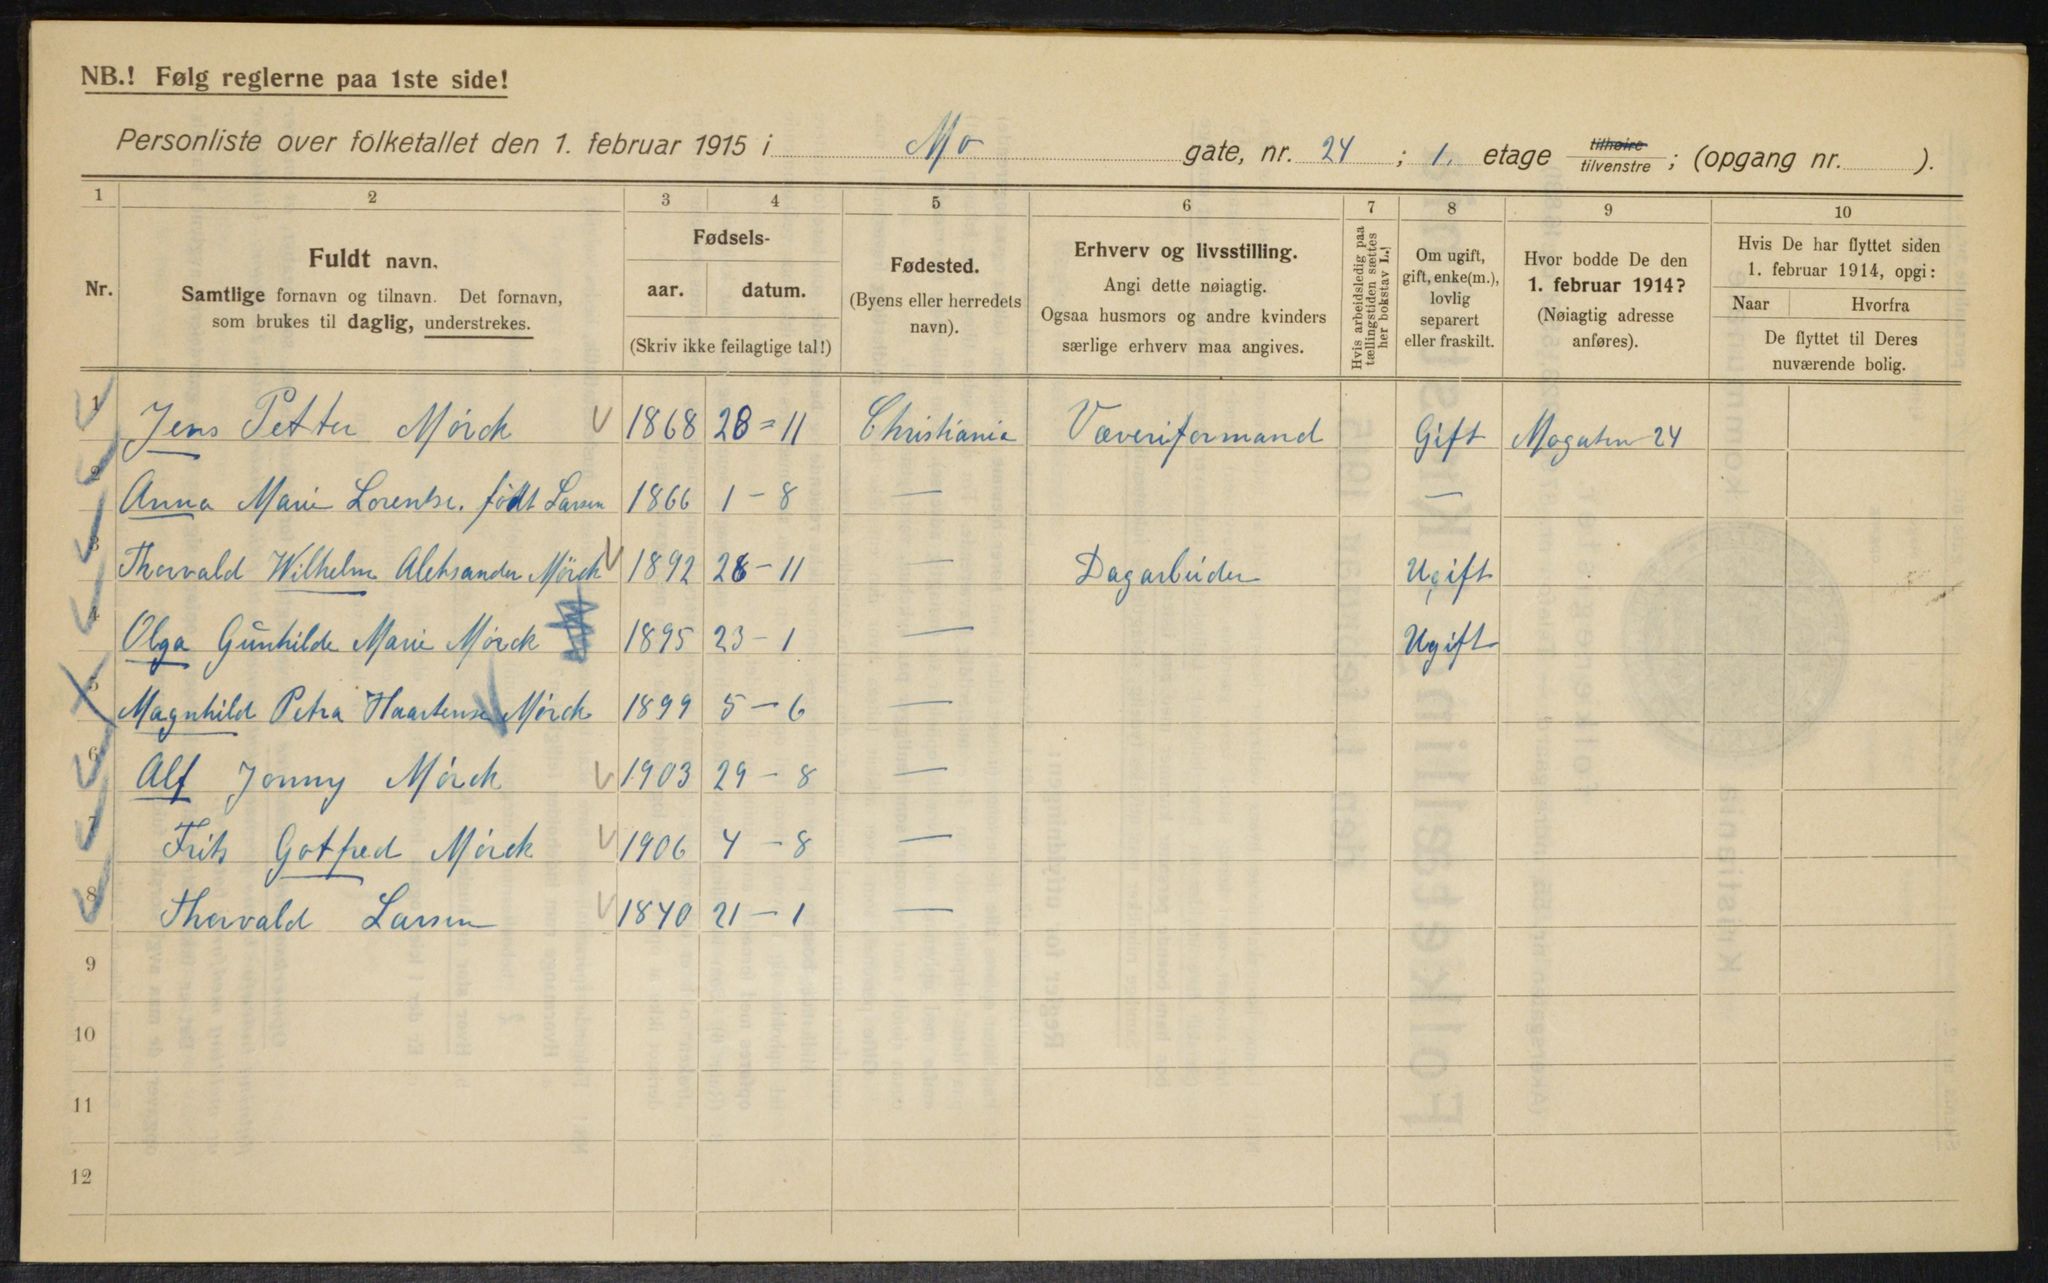 NB.! Følg reglerne paa 1ste side!
Personliste over folketallet den 1. februar 1915 i Mo gate, nr. 24 ; 1. etage tilhøire tilvenstre ; (opgang nr. ).
1 2 3 4 5 6 7 8 9 10
Nr.
Fuldt navn.
Samtlige fornavn og tilnavn. Det fornavn,
som brukes til daglig, understrekes.
Fødsels-
aar. datum.
(Skriv ikke feilagtige tal!)
Fødested.
(Byens eller herredets
navn).
Erhverv og livsstilling.
Angi dette nøiagtig.
Ogsaa husmors og andre kvinders
særlige erhverv maa angives.
Hvis arbeidsledig paa
tællingstiden sættes
her bokstav L.!
Om ugift,
gift, enke(m.),
lovlig
separert
eller fraskilt.
Hvor bodde De den
1. februar 1914?
(Nøiagtig adresse
anføres).
Hvis De har flyttet siden
1. februar 1914, opgi:
Naar Hvorfra
De flyttet til Deres
nuværende bolig.
1 Jens Petter Mörck 1868 28 = 11 Christiania Væveriformand Gift Mogaten 24
2 Anna Marie Lorentse. födt Larsen 1866 1 – 8 — —
3 Thorvald Wilhelm Aleksander Mörck 1892 28 – 11 — Dagarbeider Ugift
4 Olga Gunhilde Marie Mörck 1895 23 – 1 — Ugift
5 Magnhild Petra Mörck 1899 5 – 6 —
6 Alf Jonny Mörck 1903 29 – 8 —
7 Frits Gotfred Mörck 1906 4 – 8 —
8 Thorvald Larsen 1840 21 – 1 —
9
10
11
12